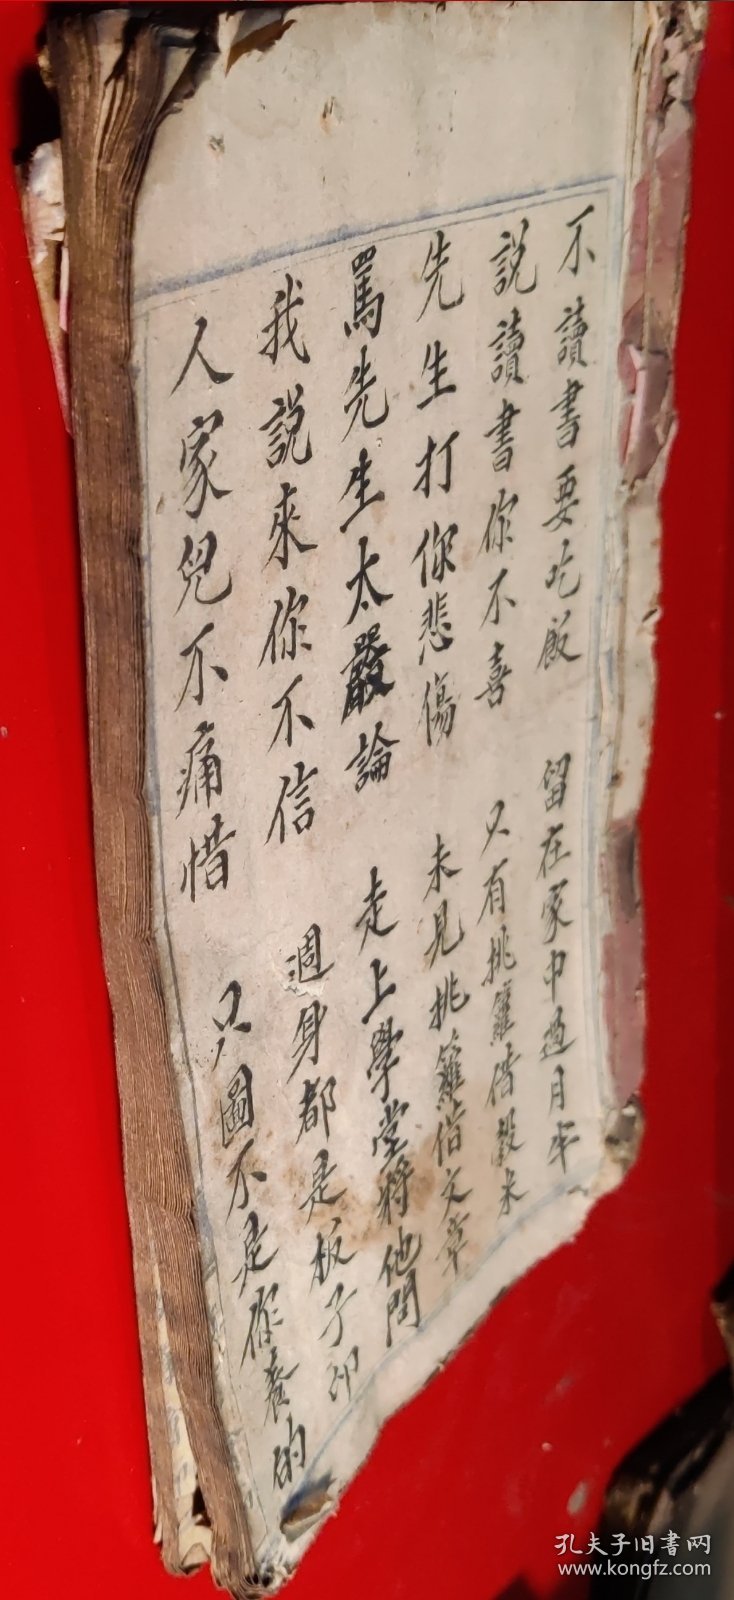 不讀書要吃飯 留在家中過月半
説讀書你不喜 只有挑籮借穀米
先生打你悲傷 未見挑籮借文章
罵先生太嚴論 走上學堂將他問
我説來你不信 週身都是板子印
人家兒不痛惜 只圖不是你養的
孔夫子旧書网
www.kongfz.com